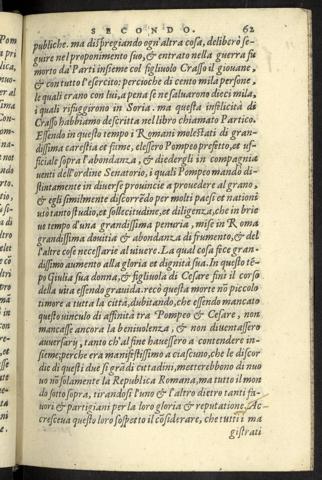 SECONDO. 62
publiche. ma dispregiando ogn'altra cosa, deliberò se-
guire nel proponimento suo, & entrato nella guerra fu
morto da' Parti insieme col figliuolo Crasso il giouane,
& con tutto l'essercito: percioche di cento mila persone,
le quali erano con lui, a pena se ne saluarono dieci mila,
i quali rifuggirono in Soria. ma questa infelicità di
Crasso habbiamo descritta nel libro chiamato Partico.
Essendo in questo tempo i Romani molestati di gran-
dissima carestia et fame, elessero Pompeo prefetto, et uf-
ficiale sopra l'abondanza, & diedergli in compagnia
uenti dell'ordine Senatorio, i quali Pompeo mando di-
stintamente in diuerse prouincie a prouedere al grano,
& egli similmente discorrēdo per molti paesi et nationi
uso tanto studio, et sollecitudine, et diligenza, che in brie
ue tempo d'una grandissima penuria, mise in Roma
grandissima douitia & abondanza di frumento, & del
l'altre cose necessarie al uiuere. La qual cosa fece gran-
dissimo aumento alla gloria et dignità sua. In questo tē-
po Giulia sua donna, & figliuola di Cesare finì il corso
della uita essendo grauida. recò questa morte nō piccolo
timore a tutta la città, dubitando, che essendo mancato
questo uinculo di affinità tra Pompeo & Cesare, non
mancasse ancora la beniuolenza, & non diuentassero
auuersarij, tanto ch'al fine hauessero a contendere in-
sieme; perche era manifestissimo a ciascuno, che le discor
die di questi due si grādi cittadini, metterebbono di nuo
uo nō solamente la Republica Romana, ma tutto il mon
do sotto sopra, tirandosi l'uno & l'altro dietro tanti fa-
uori & partigiani per la loro gloria & reputatione. Ac-
cresceua questo loro sospetto il cōsiderare, che tutti i ma
gistrati